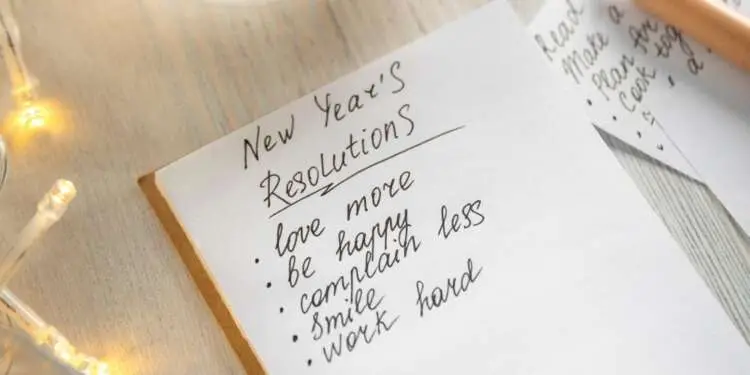 New Year's
Resolutions
• love more
• be happy
• complain less
• smile
• work hard
Read
Make a
• Plan for
• Cook tog
• a